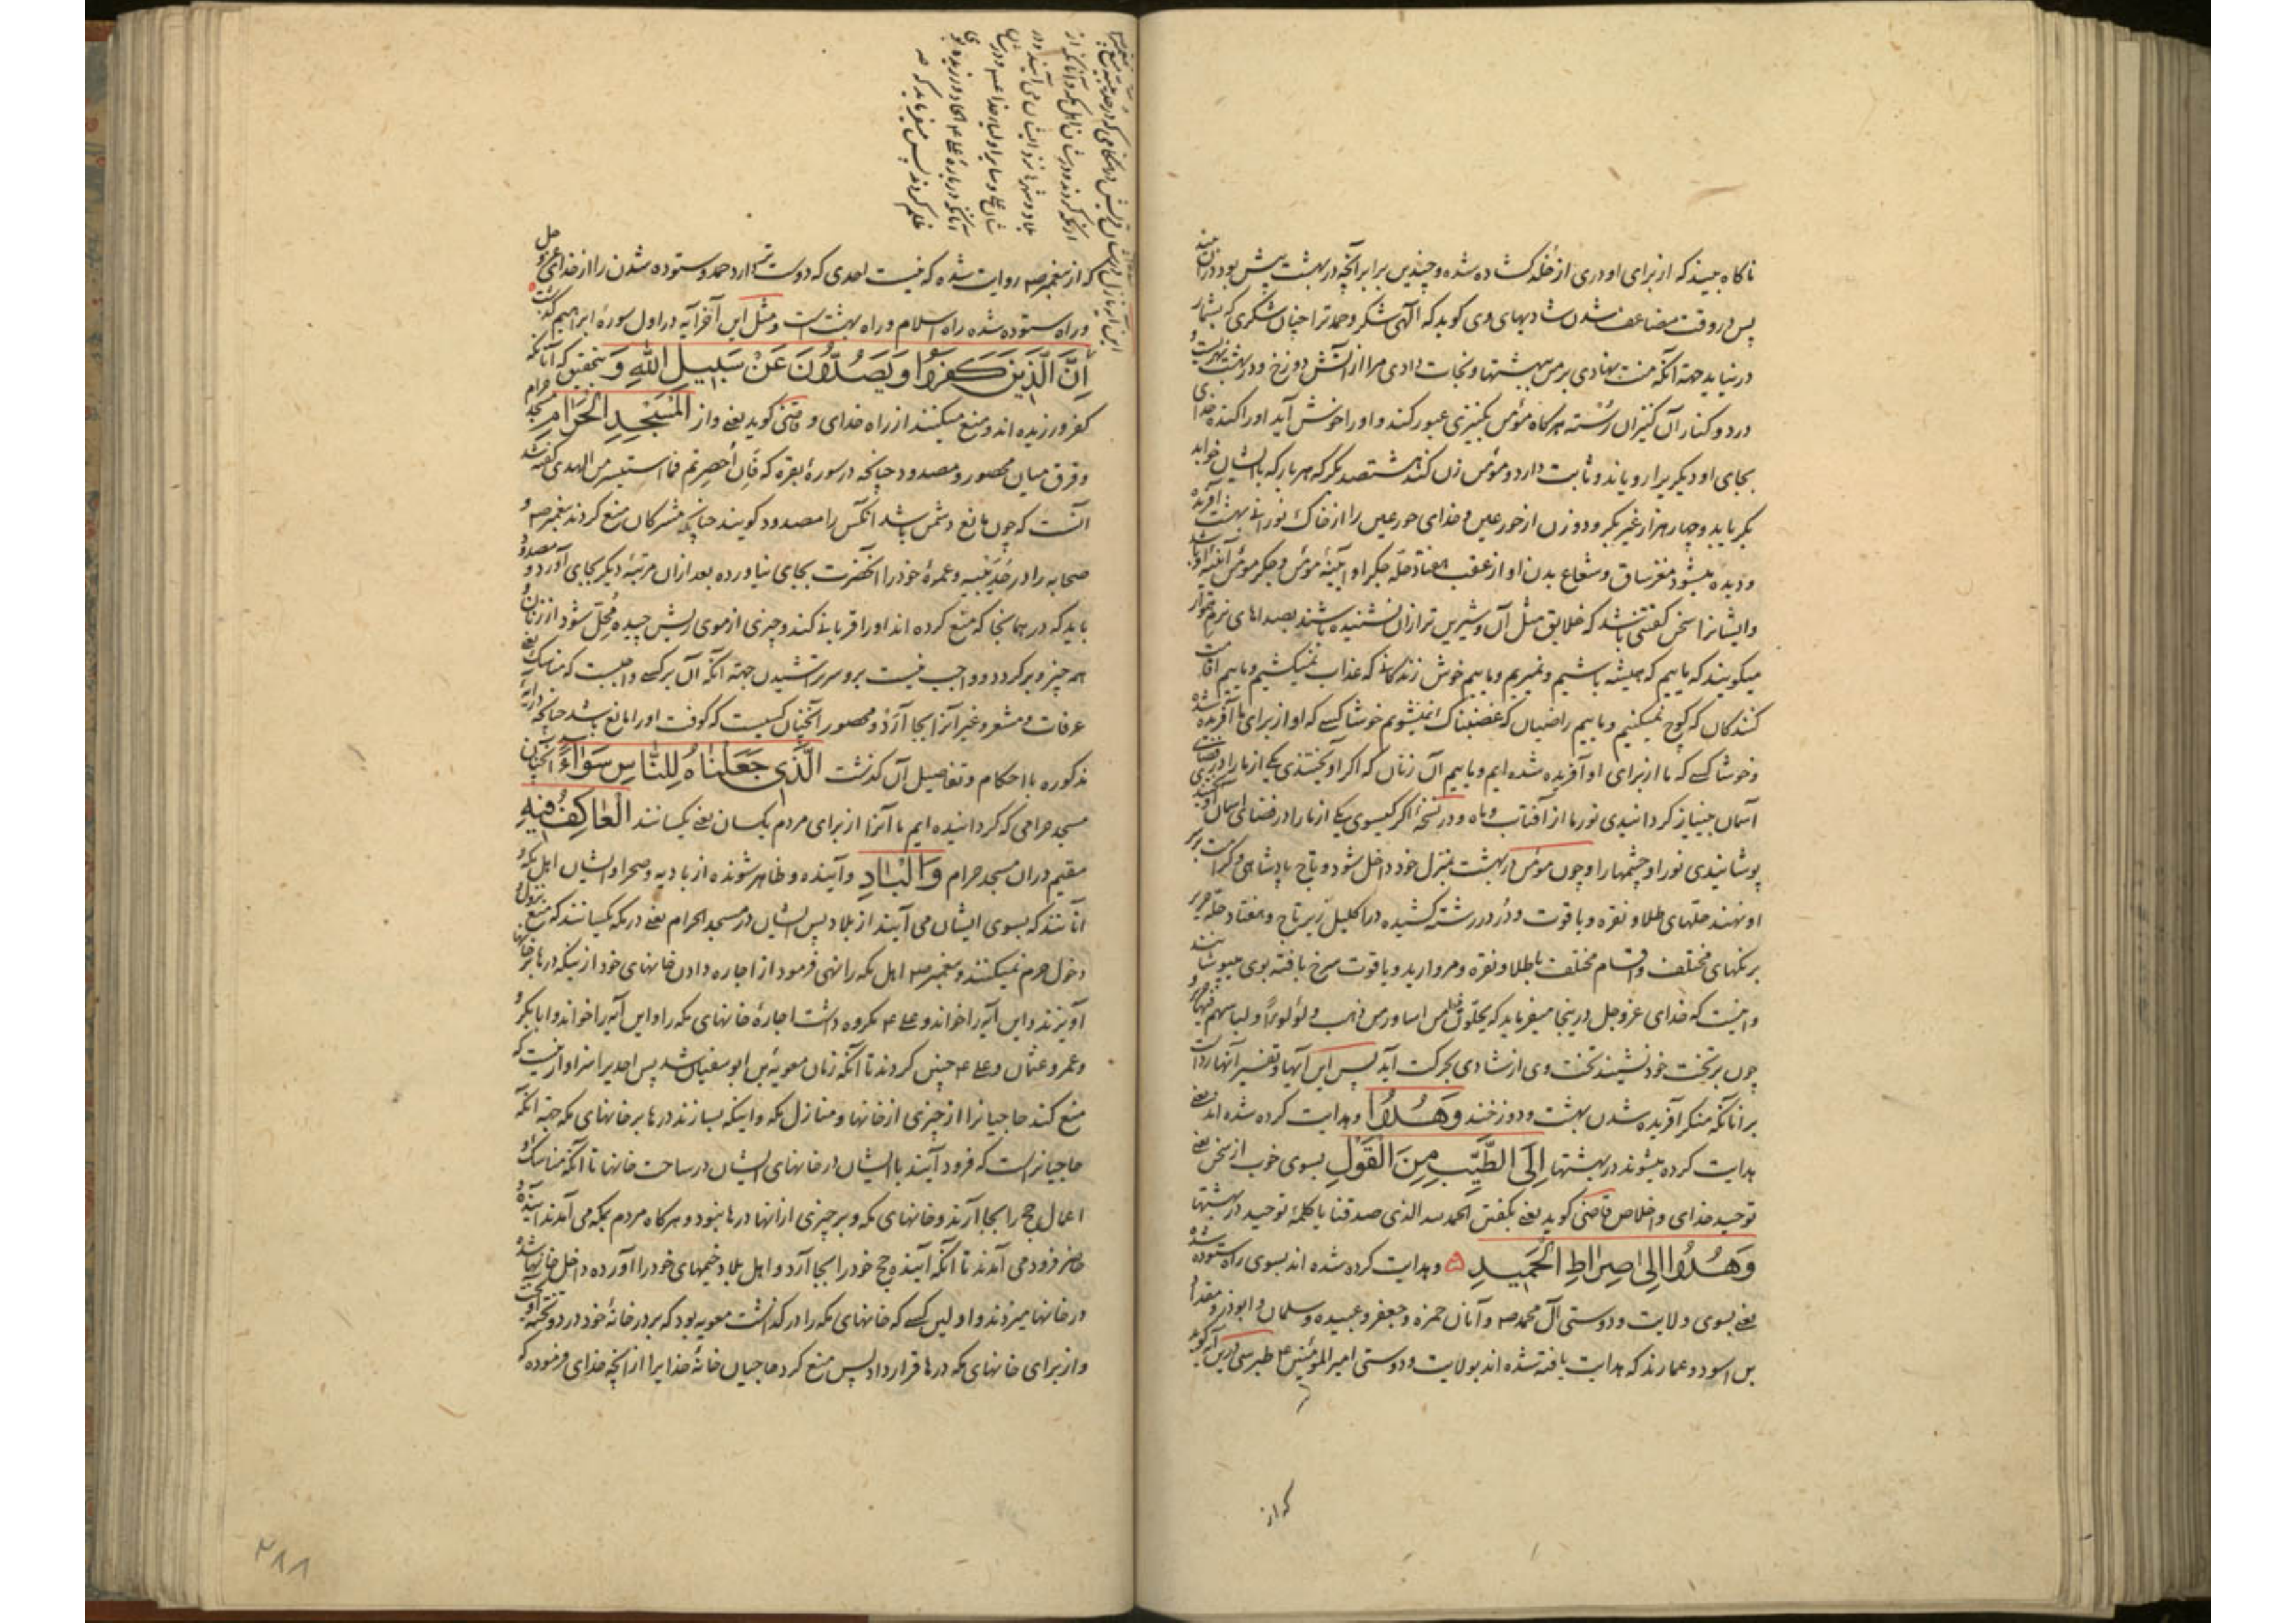 ناکاه بیند که از برای او دری از خُلد کشاده شده و چندین برابر آنچه در بهشت پیش بود در آن بیند
پس در وقت مضاعف شدن شادیهای وی کوید که الٓهی شکر و حمد ترا چنان شکری که بشمار
در نیاید جهة آنکه منت نهادی بر من ببهشتها و نجات دادی مرا از آتش دوزخ و در بهشت نهریست
در دو کنار آن کنیزان رُسته هرکاه مؤمن بکنیزی عبور کند و او را خوش آید او را کنده خدای
بجای او دیکریرا رویاند و ثابت دارد و مؤمن زن کند هشتصد بکر که هر بار که با ایشان خوابد
بکر یابد و چهار هزار غیر بکر و دو زن از حور عین و خدای حور عین را از خاک نورانی بهشت آفریده
و دیده میشود مغز ساق و شعاع بدن او از عقب هفتاد حلّه جکر او آیینهٔ مؤمن و جکر مؤمن آیینهٔ او باشد
و ایشانرا سخن کفتنی باشد که خلایق مثل آن و شیرین تر از آن نشنیده باشند بصداهای نرم
میکویند که ماییم که همیشه باشیم و نمیریم و ماییم خوش زندکانی که عذاب نمیکشیم و ماییم اقامت
کنندکان که کوچ نمیکنیم و ماییم راضیان که غضبناک نمیشویم خوشا کسی که او از برای ما آفریده شده
و خوشا کسی که ما از برای او آفریده شده ایم و ماییم آن زنان که اکر آویختندی یکی از ما را در فضای
آسمان بینیاز کردانیدی نور ما از آفتاب و ماه و در نسخهٔ اکر کیسوی یکی از ما را در فضای آسمان آویختندی
پوشانیدی نور او چشمها را و چون مؤمن در بهشت بمنزل خود داخل شود و تاج پادشاهی و کرامت بر سر
او نهند حلّهای طلا و نقره و یاقوت و دُر در رشته کشیده در اکلیل زیر تاج و هفتاد حلّه حریر
برنکهای مختلف و اقسام مختلف با طلا و نقره و مروارید و یاقوت سرخ بافته بوی میپوشانند
و اینست که خدای عزوجل در اینجا میفرماید که یحلّون فیها من اساور من ذهب و لؤلؤاً و لباسهم فیها حریر و
چون بر تخت خود نشیند تخت وی از شادی بحرکت آید پس این آیها و تفسیر آنها ردّ است
بر آنانکه منکر آفریده شدن بهشت و دوزخند وَهُدُوٓا و هدایت کرده شده اند یعنی
هدایت کرده میشوند در بهشتها اِلَی الطَّیِّبِ مِنَ الْقَوْلِ بسوی خوب از سخن یعنی
توحید خدای و اخلاص قاضی کوید یعنی بکفتن الحمد لله الذی صدقنا یا کلمهٔ توحید در بهشتها
وَهُدُوٓا اِلٰی صِرَاطِ الْحَمِیدِ و هدایت کرده شده اند بسوی راه ستوده شده
یعنی بسوی ولایت و دوستی آل محمد ص و آنان حمزه و جعفر و عبیده و سلمان و ابوذر و مقداد
بن اسود و عمارند که هدایت یافته شده اند بولایت و دوستی امیر المؤمنین ع طبرسی درین آیه کوید
که از
که از پیغمبر ص روایت شده که نیست احدی که دوست تر دارد حمد و ستوده شدن را از خدای عزّ و جل
و راه ستوده شده راه اسلام و راه بهشت است و مثل این آخر آیه در اول سورهٔ ابراهیم کذشت
اِنَّ الَّذِینَ کَفَرُوا وَیَصُدُّونَ عَنْ سَبِیلِ اللّٰهِ وَ بتحقیق که آنانکه
کفر ورزیده اند و منع میکنند از راه خدای و قاضی کوید یعنی و از الْمَسْجِدِ الْحَرَامِ مسجد حرام
و فرق میان محصور و مصدود چنانچه در سورهٔ بقره که فان اُحصِرتم فما استیسر من الهدی کفته شد
آنست که چون مانع دشمن باشد آنکس را مصدود کویند چنانچه مشرکان منع کردند پیغمبر ص و
صحابه را در حُدَیبِیه و عمرهٔ خود را آنحضرت بجای نیاورده بعد از آن مرتبهٔ دیکر بجای آورد و مصدود
باید که در همانجا که منع کرده اند او را قربانی کند و چیزی از موی ریش چیده مُحِلّ شود از زنان و
همه چیز و برکردد و واجب نیست بر و سر تراشیدن جهة آنکه آن بر کسی واجبست که مناسک یعنی
عرفات و مشعر و غیر آنرا بجا آرَد و محصور آنچنان کسیست که کوفت او را مانع باشد چنانچه در آیهٔ
مذکوره با احکام و تفاصیل آن کذشت الَّذِی جَعَلْنَاهُ لِلنَّاسِ سَوَآءً آنچنان
مسجد حرامی که کردانیده ایم ما آنرا از برای مردم یکسان یعنی یکسانند الْعَاکِفُ فِیهِ
مقیم در آن مسجد حرام وَالْبَادِ و آینده و ظاهر شونده از بادیه و صحرا و ایشان اهل مکه و
آنانند که بسوی ایشان می آیند از بلاد پس ایشان در مسجد الحرام یعنی در مکه یکسانند که منع نزول و
دخول حرم نمیکنند و پیغمبر ص اهل مکه را نهی فرمود از اجاره دادن خانهای خود از ینکه درها بر خانها
آویزند و این آیه را خواند و علی ع مکروه داشت اجارهٔ خانهای مکه را و این آیه را خواند و ابابکر و
و عمر و عثمان و علی ع چنین کردند تا آنکه زمان معویة بن ابوسفیان شد پس احدیرا سزاوار نیست که
منع کند حاجیانرا از چیزی از خانها و منازل مکه و اینکه بسازند درها بر خانهای مکه جهة آنکه
حاجیانراست که فرود آیند با ایشان در خانهای ایشان در ساحت خانها تا آنکه مناسک و
اعمال حج را بجا آرند و خانهای مکه و بر چیزی از آنها درها نبود و هرکاه مردم بمکه می آمدند آینده و
حاضر فرود می آمدند تا آنکه آینده حج خود را بجا آرد و اهل بلاد خیمهای خود را آورده داخل خانها شده
در خانها میزدند و اولین کسی که خانهای مکه را در کذاشت معویه بود که بر در خانهٔ خود در دو تخته
و از برای خانهای مکه درها قرار داد پس منع کرد حاجیان خانهٔ خدا را از آنچه خدای فرموده که
۲۸۸